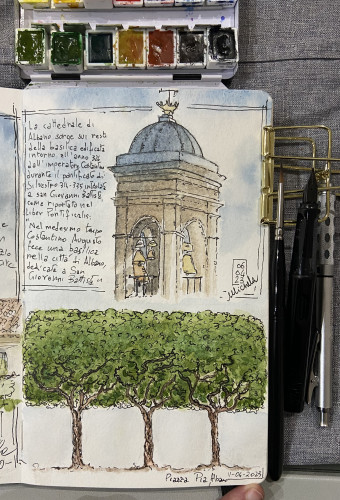 La cattedrale di
Albano sorge sui resti
della basilica edificata
intorno all'anno 314
dall'imperatore Costantino
durante il pontificato di
Silvestro 314-335 intitolata
a San Giovanni Battista
come riportato nel
Liber Pontificalis:
Nel medesimo tempo
Costantino Augusto
fece una basilica
nella città di Albano,
dedicate a San
Giovanni Battista
06
04
23
Michela
Piazza Pia
11-06-2023